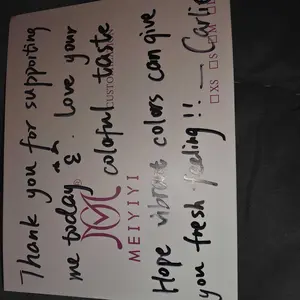 Thank you for supporting
me today & . Love your
coloful taste
Hope vibrant colors can give
you fresh feeling!! — Carlie
MEIYIYI
XS S M